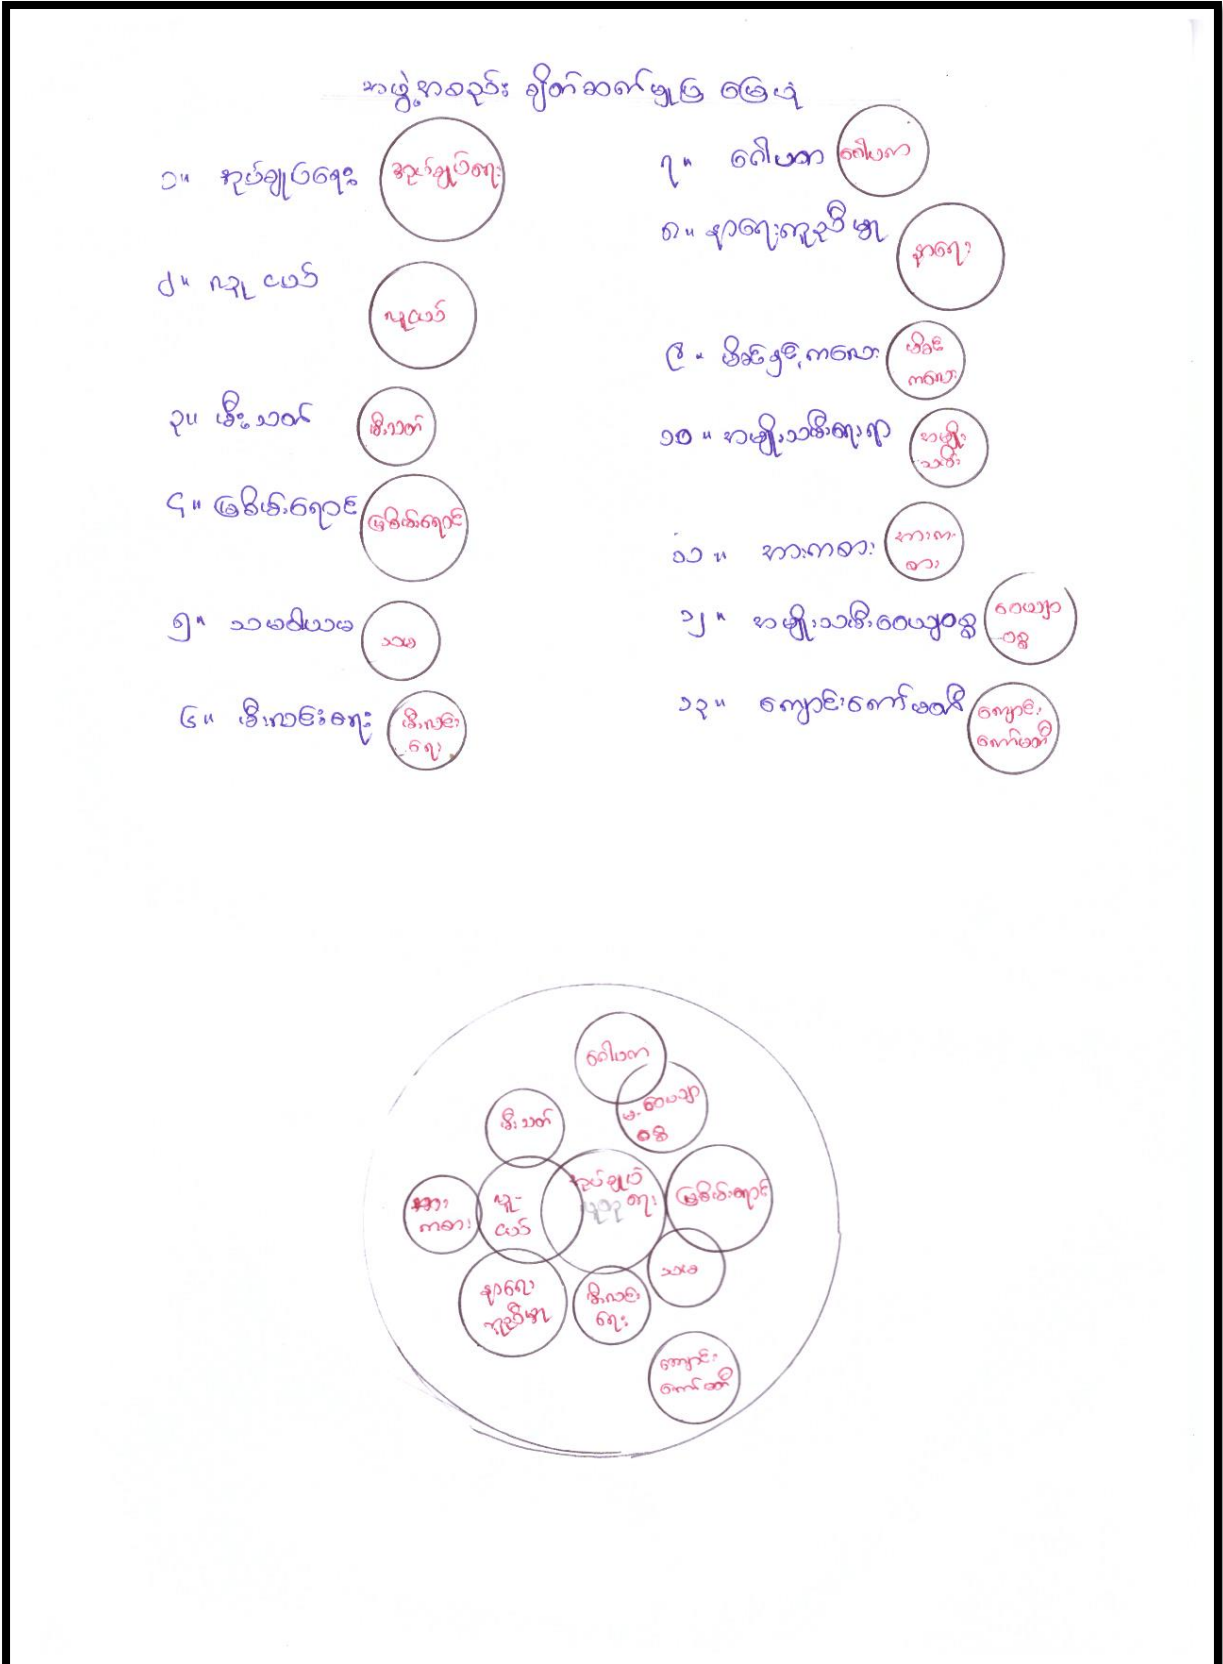 အဖွဲ့အစည်း ချိတ်ဆက်မှုပြ မြေပုံ
၁။ အုပ်ချုပ်ရေး
အုပ်ချုပ်ရေး
၂။ လူငယ်
လူငယ်
၃။ မီးသတ်
မီးသတ်
၄။ မြစိမ်းရောင်
မြစိမ်းရောင်
၅။ သမဝါယမ
သမ
၆။ မီးလင်းရေး
မီးလင်း
ရေး
၇။ ဂေါပက
ဂေါပက
၈။ နာရေးကူညီမှု
နာရေး
၉။ မိခင်နှင့်ကလေး
မိခင်
ကလေး
၁၀။ အမျိုးသမီးရေးရာ
အမျိုး
သမီး
၁၁။ အားကစား
အားက
စား
၁၂။ အမျိုးသမီးဝေယျာဝစ္စ
ဝေယျာ
ဝစ္စ
၁၃။ ကျောင်းကော်မတီ
ကျောင်း
ကော်မတီ
ဂေါပက
မ-ဝေယျာ
ဝစ္စ
မီးသတ်
အုပ်ချုပ်
ရေး
မြစိမ်းရောင်
အား
ကစား
လူ-
ငယ်
သမ
နာရေး
ကူညီမှု
မီးလင်း
ရေး
ကျောင်း
ကော်မတီ